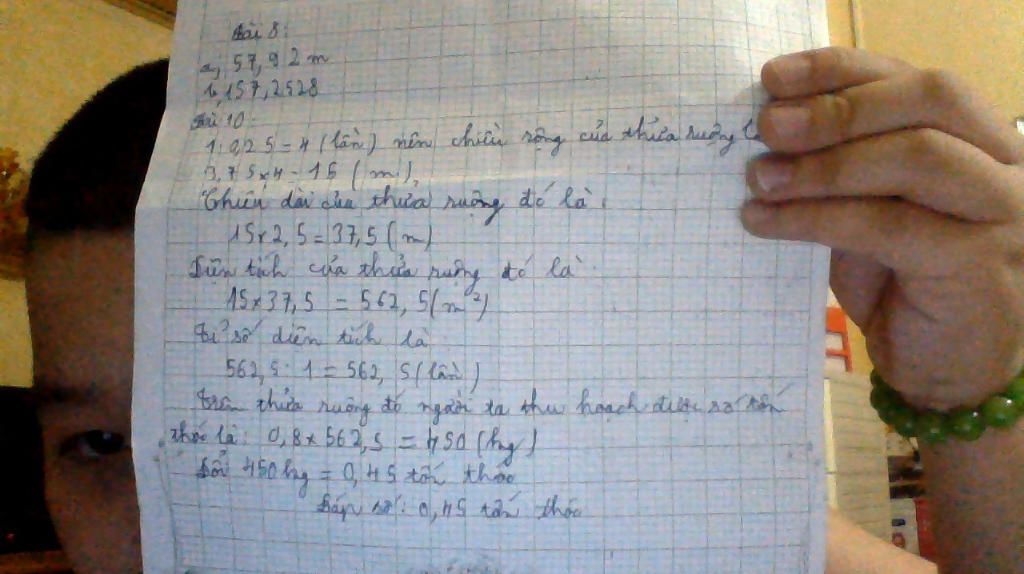 Bài 8:
a, 57,92 m
b, 157,2528
Bài 10:
1 : 0,25 = 4 (lần) nên chiều rộng của thửa ruộng là
3,75 x 4 = 15 (m),
Chiều dài của thửa ruộng đó là:
15 x 2,5 = 37,5 (m)
Diện tích của thửa ruộng đó là:
15 x 37,5 = 562,5 (m²)
Tỉ số diện tích là:
562,5 : 1 = 562,5 (lần)
Trên thửa ruộng đó người ta thu hoạch được số tấn
thóc là: 0,8 x 562,5 = 450 (kg)
Đổi 450kg = 0,45 tấn thóc
Đáp số: 0,45 tấn thóc